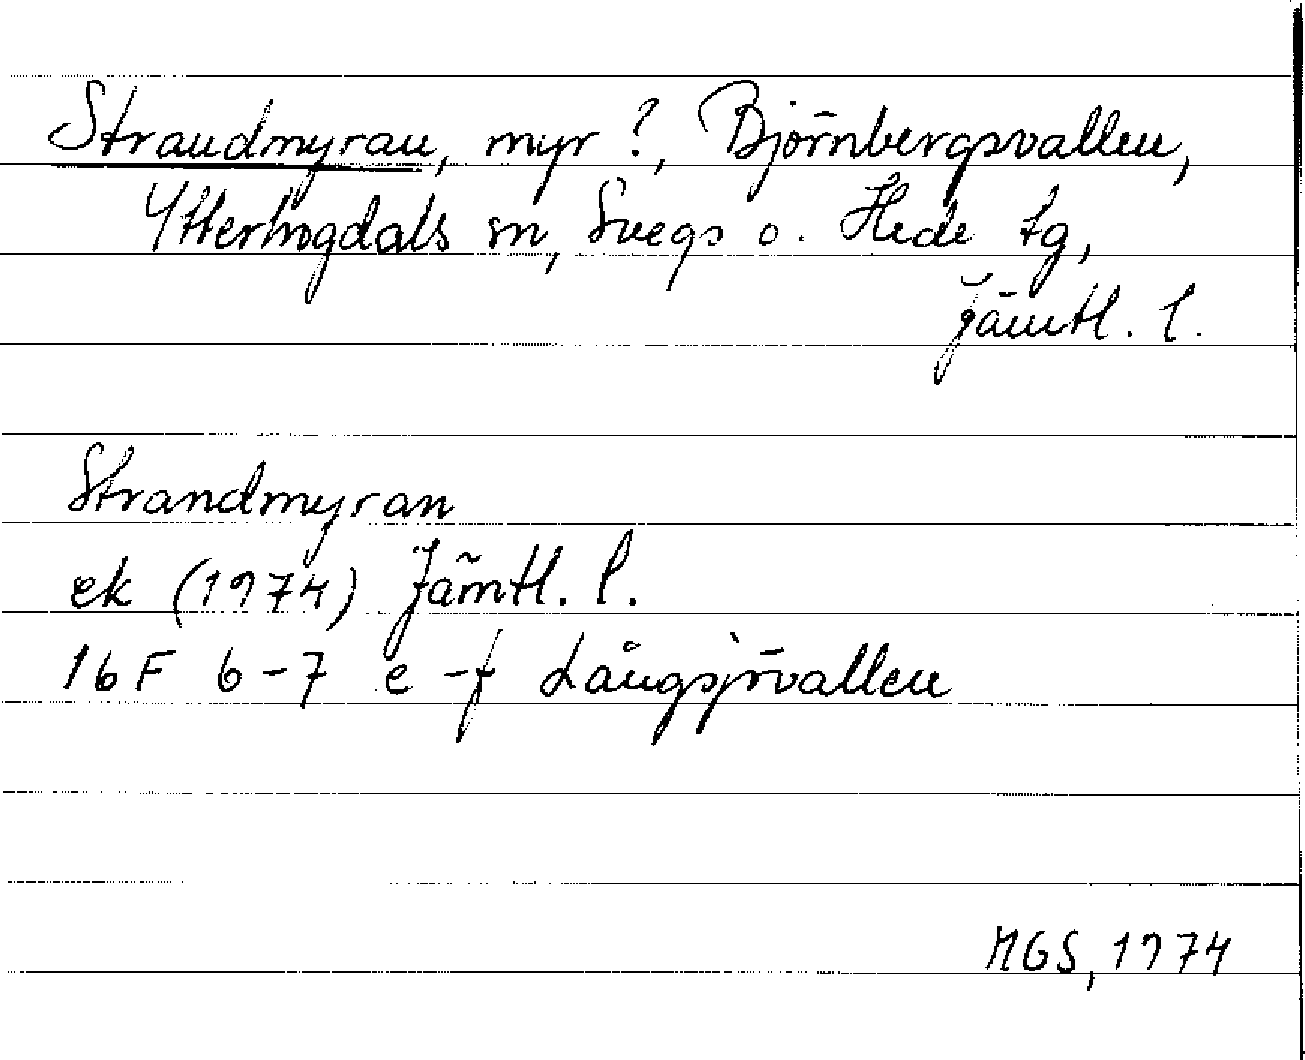 Strandmyran, myr?, Björnbergsvallen,
Ytterhogdals sn, Svegs o. Hede tg,
Jämtl. l.
Strandmyran
ek (1974) Jämtl. l.
16F 6-7 e-f Långsjövallen
MGS, 1974